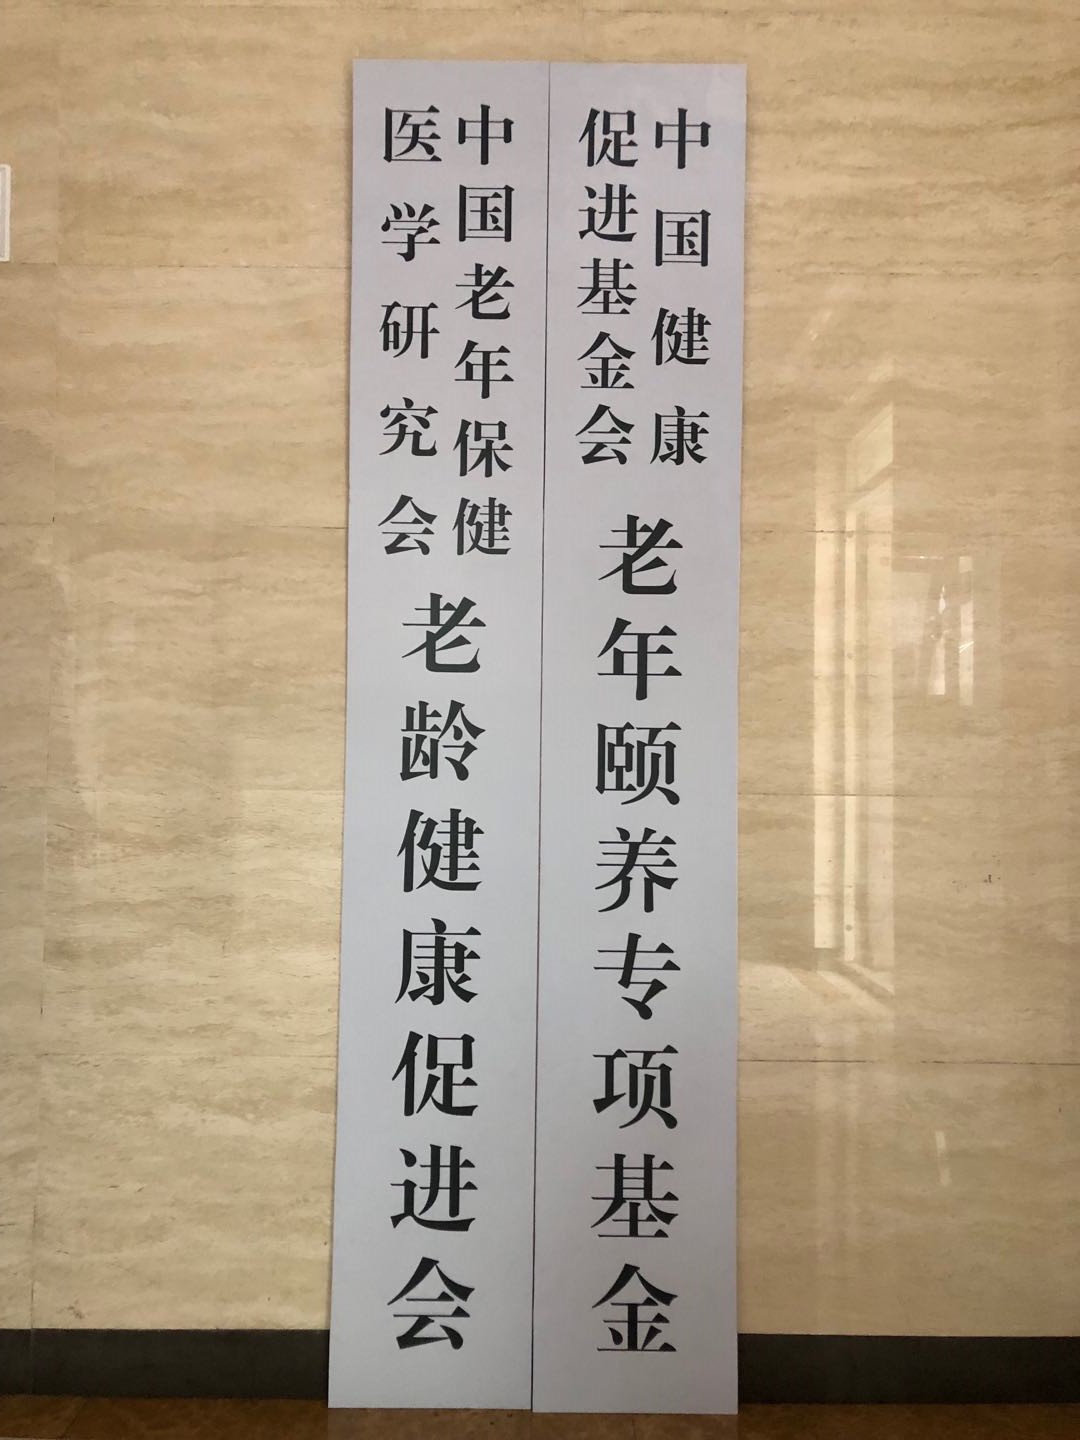 中国健康
促进基金会
老年颐养专项基金
中国老年保健
医学研究会
老龄健康促进会